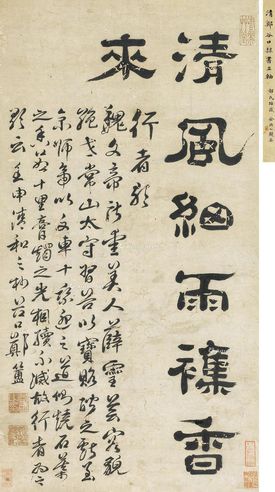 清鄭谷口隸書立軸
清風細雨襍香
來
行者歌
魏文帝所愛美人薛靈芸容貌
絕世常山太守習谷以寶賂聘之獻至
京師帝以文車十乘迎之道側燒石葉
之香十里膏燭之光相續不滅故行者為之
歌云壬申清和之杪谷口鄭簠